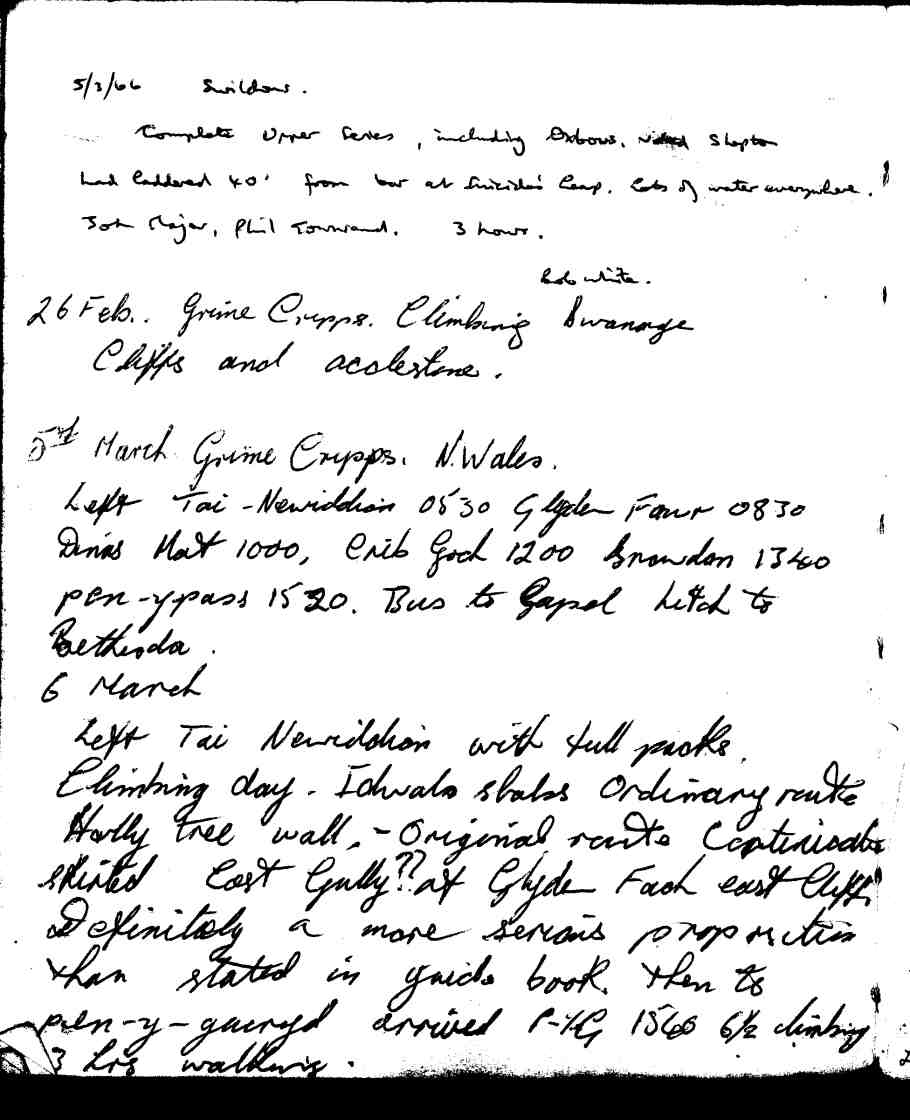 5/3/66 Swildons.
Complete Upper Series, including Oxbows. Shepton
had laddered 40' from bar at Suicide's Leap. Lots of water everywhere.
John Major, Phil Townsend. 3 hours.
Bob White.
26 Feb.. Grime Cripps. Climbing Swanage
Cliffs and
5th March Grime Cripps. N.Wales.
Left Tai-Newiddion 0530 Glyder Fawr 0830
Dinas Mot 1000, Crib Goch 1200 Snowdon 1340
pen-ypass 1520. Bus to Capel hitch to
Bethesda.
6 March
Left Tai Newiddion with full packs.
Climbing day - Idwals slabs Ordinary route
Holly Tree wall, - Original route Continuation
skirted East Gully?? at Glyder Fach east Cliff.
Definitely a more serious proposition
than stated in guide book. Then to
pen-y-gwryd arrived P-Y-G 6½ climbing
3 hrs walking.